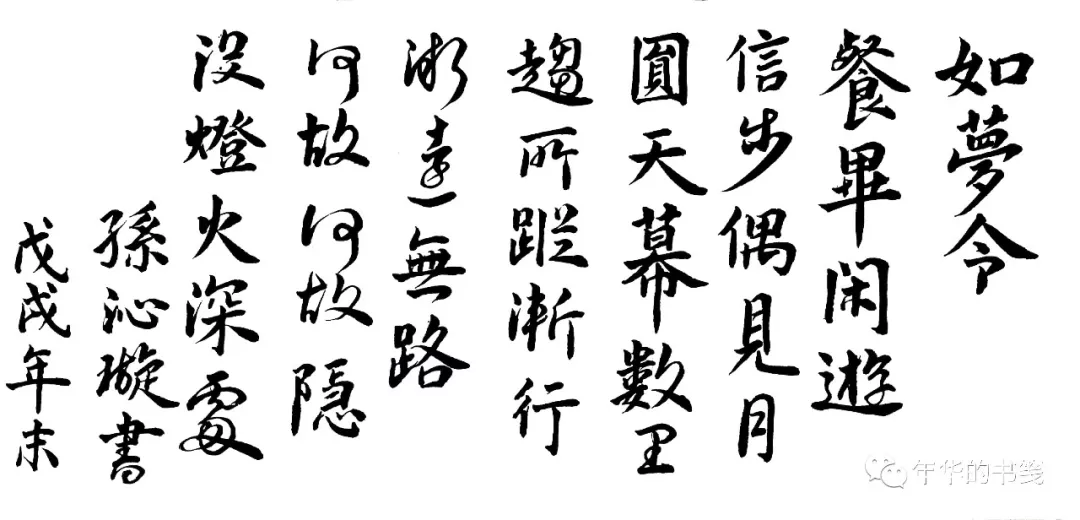 如夢令
餐畢闲遊
信步偶見月
圓天幕數里
趨所蹤漸行
漸遠無路
何故何故隱
没燈火深處
孫沁璇書
戊戌年末
年华的书笺